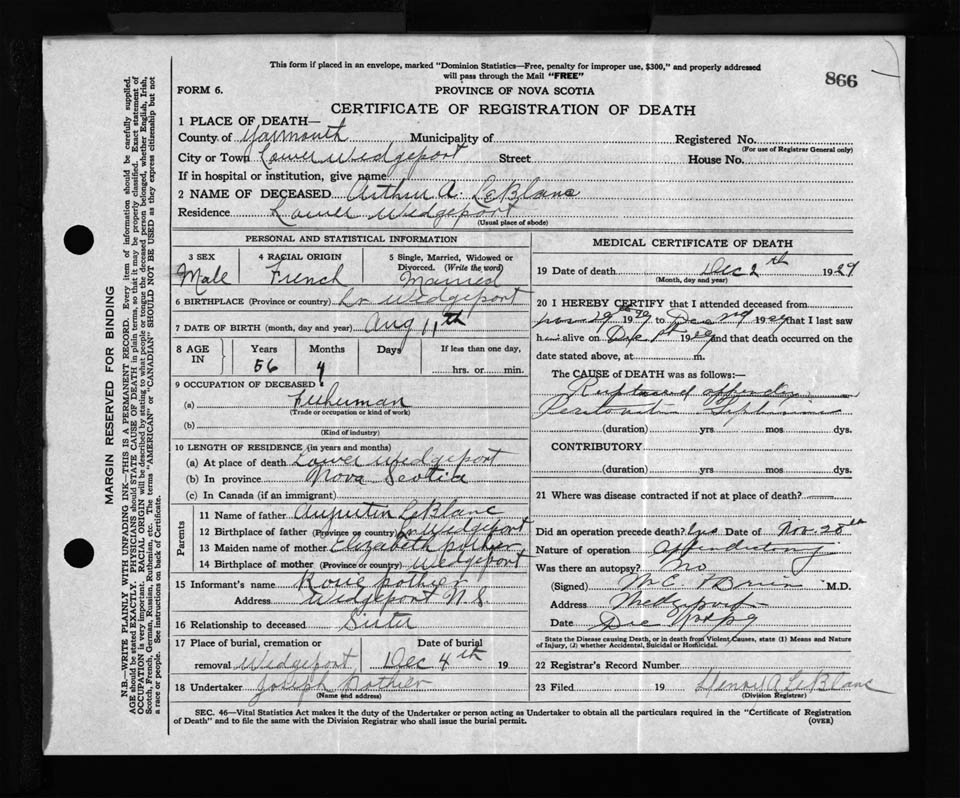 This form if placed in an envelope, marked "Dominion Statistics—Free, penalty for improper use, $300," and properly addressed
will pass through the Mail "FREE"
866
FORM 6.
PROVINCE OF NOVA SCOTIA
CERTIFICATE OF REGISTRATION OF DEATH
1 PLACE OF DEATH—
County of Yarmouth Municipality of Registered No.
(For use of Registrar General only)
City or Town Lower Wedgeport Street House No.
If in hospital or institution, give name
2 NAME OF DECEASED Arthur A. LeBlanc
Residence Lower Wedgeport
(Usual place of abode)
PERSONAL AND STATISTICAL INFORMATION
3 SEX 4 RACIAL ORIGIN 5 Single, Married, Widowed or
Divorced. (Write the word)
Male French Married
6 BIRTHPLACE (Province or country) Lr Wedgeport
7 DATE OF BIRTH (month, day and year) Aug 11th
8 AGE IN Years Months Days If less than one day,
56 4 hrs. or min.
9 OCCUPATION OF DECEASED
(a) Fisherman
(Trade or occupation or kind of work)
(b)
(Kind of industry)
10 LENGTH OF RESIDENCE (in years and months)
(a) At place of death Lower Wedgeport
(b) In province Nova Scotia
(c) In Canada (if an immigrant)
Parents
11 Name of father Augustin LeBlanc
12 Birthplace of father (Province or country) Lr Wedgeport
13 Maiden name of mother Elizabeth pothier
14 Birthplace of mother (Province or country) Wedgeport
15 Informant's name Rose pothier
Address Wedgeport N.S.
16 Relationship to deceased Sister
17 Place of burial, cremation or Date of burial
removal Wedgeport Dec 4th 19
18 Undertaker Joseph Pothier
(Name and address)
MEDICAL CERTIFICATE OF DEATH
19 Date of death Dec 2th 1929
(Month, day and year)
20 I HEREBY CERTIFY that I attended deceased from
1929 to Dec 1929 that I last saw
h alive on 1929 and that death occurred on the
date stated above, at m.
The CAUSE OF DEATH was as follows:—
Ruptured appendix
(duration) yrs mos dys.
CONTRIBUTORY
(duration) yrs. mos dys.
21 Where was disease contracted if not at place of death?
Did an operation precede death? Yes Date of Nov. 28th
Nature of operation
Was there an autopsy? No
(Signed) M.D.
Address Wedgeport
Date Dec
State the Disease causing Death, or in death from Violent Causes, state (1) Means and Nature
of Injury, (2) whether Accidental, Suicidal or Homicidal.
22 Registrar's Record Number
23 Filed 19 A LeBlanc
(Division Registrar)
SEC. 46—Vital Statistics Act makes it the duty of the Undertaker or person acting as Undertaker to obtain all the particulars required in the "Certificate of Registration
of Death" and to file the same with the Division Registrar who shall issue the burial permit.
(OVER)
MARGIN RESERVED FOR BINDING
N.B.—WRITE PLAINLY WITH UNFADING INK—THIS IS A PERMANENT RECORD. Every item of information should be carefully supplied.
AGE should be stated EXACTLY. PHYSICIANS should STATE CAUSE OF DEATH in plain terms, so that it may be properly classified. Exact statement of
OCCUPATION is very important. RACIAL ORIGIN will be described by stating to what people or tongue the deceased person belonged, whether English, Irish,
Scotch, French, German, Russian, Ruthenian, etc. The terms "AMERICAN" or "CANADIAN" SHOULD NOT BE USED as they express citizenship but not
a race or people. See instructions on back of Certificate.